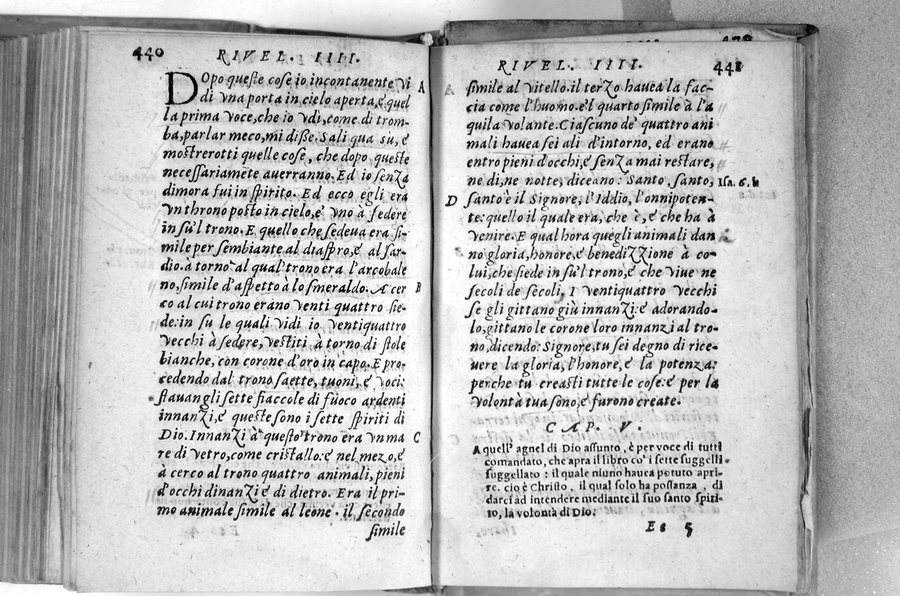 440
RIVEL. IIII.
DOpo queste cose io incontanente vi
di vna porta in cielo aperta, e quel
la prima voce, che io vdi, come di trom-
ba, parlar meco, mi disse. Sali qua su, e
mostrerotti quelle cose, che dopo queste
necessariamēte auerranno. Ed io senza
dimora fui in spirito. Ed ecco egli era
vn throno posto in cielo, e' vno à sedere
in su'l trono. E quello che sedeua era si-
mile per sembiante al diaspro, e' al sar-
dio. a torno al qual' trono era l'arcobale
no, simile d'aspetto à lo smeraldo. A cer
co al cui trono erano venti quattro sie-
de: in su le quali vidi io ventiquattro
vecchi à sedere, vestiti à torno di stole
bianche, con corone d'oro in capo. E pro
cedendo dal trono saette, tuoni, e' voci:
stauangli sette fiaccole di fuoco ardenti
innanzi, e queste sono i sette spiriti di
Dio. Innanzi à questo trono era vn ma
re di vetro, come cristallo: e nel mezo, e
à cerco al trono quattro animali, pieni
d'occhi dinanzi e di dietro. Era il pri-
mo animale simile al leone. il secondo
simile
A
B
C
RIVEL. IIII.
441
simile al vitello. il terzo hauea la fac-
cia come l'huomo. e'l quarto simile à l'a
quila volante. Ciascuno de' quattro ani
mali hauea sei ali d'intorno, ed erano
entro pieni d'occhi, e senza mai restare,
ne di, ne notte, diceano: Santo, Santo,
Santo è il Signore, l'Iddio, l'onnipoten-
te: quello il quale era, che è, e che ha à
venire. E qual hora quegli animali dan
no gloria, honore, e benedizzione à co-
lui, che siede in su'l trono, e che viue ne
secoli de secoli, I ventiquattro vecchi
se gli gittano giù innanzi: e adorando-
lo, gittano le corone loro innanzi al tro-
no, dicendo: Signore, tu sei degno di rice-
uere la gloria, l'honore, e la potenza:
perche tu creasti tutte le cose: e per la
volontà tua sono, e furono create.
A
Isa. 6. b
D
CAP. V.
A quell' agnel di Dio assunto, è per voce di tutti
comandato, che apra il libro co' i sette suggelli
suggellato: il quale niuno hauea potuto apri-
re. cio è Christo, il qual solo ha possanza, di
darci ad intendere mediante il suo santo spiri-
to, la volontà di Dio:
Ee 5